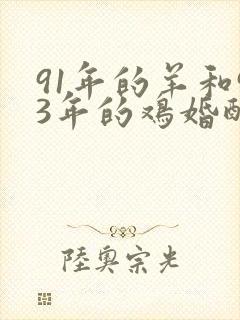 91年的羊和9
3年的鸡婚配
陸奧宗光